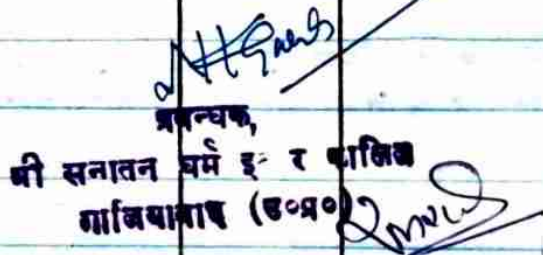 प्रबन्धक,
श्री सनातन धर्म इ- र कालिज
गाजियाबाद (उ०प्र०)